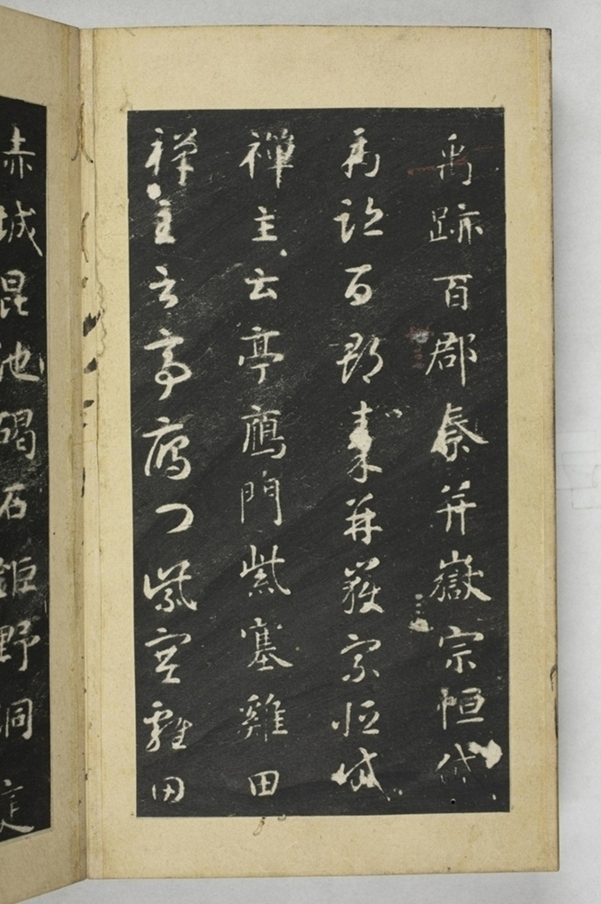 禹跡百郡秦并嶽宗恒岱
禹跡百郡秦并嶽宗恒岱
禪主云亭鴈門紫塞雞田
禪主云亭鴈門紫塞雞田
赤城昆池碣石鉅野洞庭